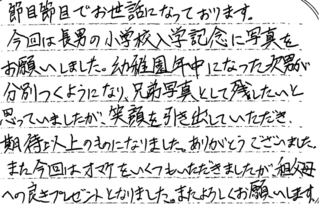 節目節目でお世話になっております。
今回は長男の小学校入学記念に写真を
お願いしました。幼稚園年中になった次男が
分別つくようになり、兄弟写真として残したいと
思っていましたが、笑顔を引き出していただき、
期待以上のものになりました。ありがとうございました。
また今回はオマケをいくつもいただきましたが、祖父母
への良きプレゼントとなりました。またよろしくお願いします。